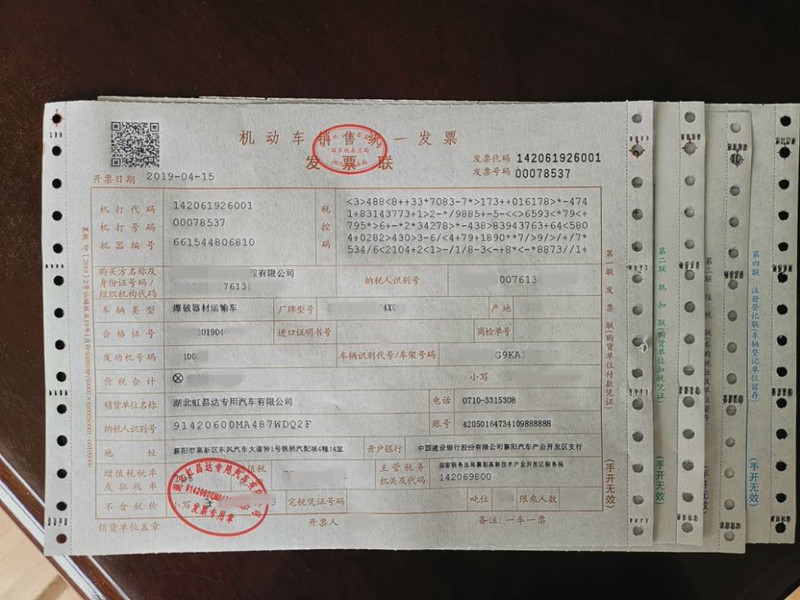 机动车销售统一发票
发票联
发票代码 142061926001
发票号码 00078537
开票日期 2019-04-15
机打代码 142061926001
机打号码 00078537
机器编号 661544806810
税控码
<3>488<8++33*7083-7*>173++016178>*-474
1+83143773+1>2-*/9885+-5-<<>6593<*79<+
795*>6+-*2*34278>*-438>83943763+64<580
4+0282>430>3-6/<4+79+1890**7/>9/>/+/7*
534/6<2104+2<1>-/1/8-3<-+8*<-*8873//1+
购买方名称及
身份证号码/
组织机构代码
程有限公司
7613
纳税人识别号 007613
车辆类型 爆破器材运输车 厂牌型号 4X 产地
合格证号 01904 进口证明书号 商检单号
发动机号码 100 车辆识别代号/车架号码 G9KA
价税合计 ⊗ 小写
销货单位名称 湖北虹昌达专用汽车有限公司 电话 0710-3315308
纳税人识别号 91420600MA487WDQ2F 账号 42050164734109888888
地址 襄阳市高新区东风汽车大道特1号德姚汽配城4幢14室 开户银行 中国建设银行股份有限公司襄阳汽车产业开发区支行
增值税税率
或征收率
税
主管税务
机关及代码
国家税务总局襄阳高新技术产业开发区税务局
142069800
不含税价 小写 完税凭证号码 吨位 限乘人数
销货单位盖章 开票人 备注:一车一票
湖北虹昌达专用汽车有限公司
发票专用章
第一联 发票联(购货单位付款凭证)
(手开无效)
第二联 抵扣联(购货单位扣税凭证)
(手开无效)
第三联
(手开无效)
第四联 注册登记联(车辆登记单位留存)
(手开无效)